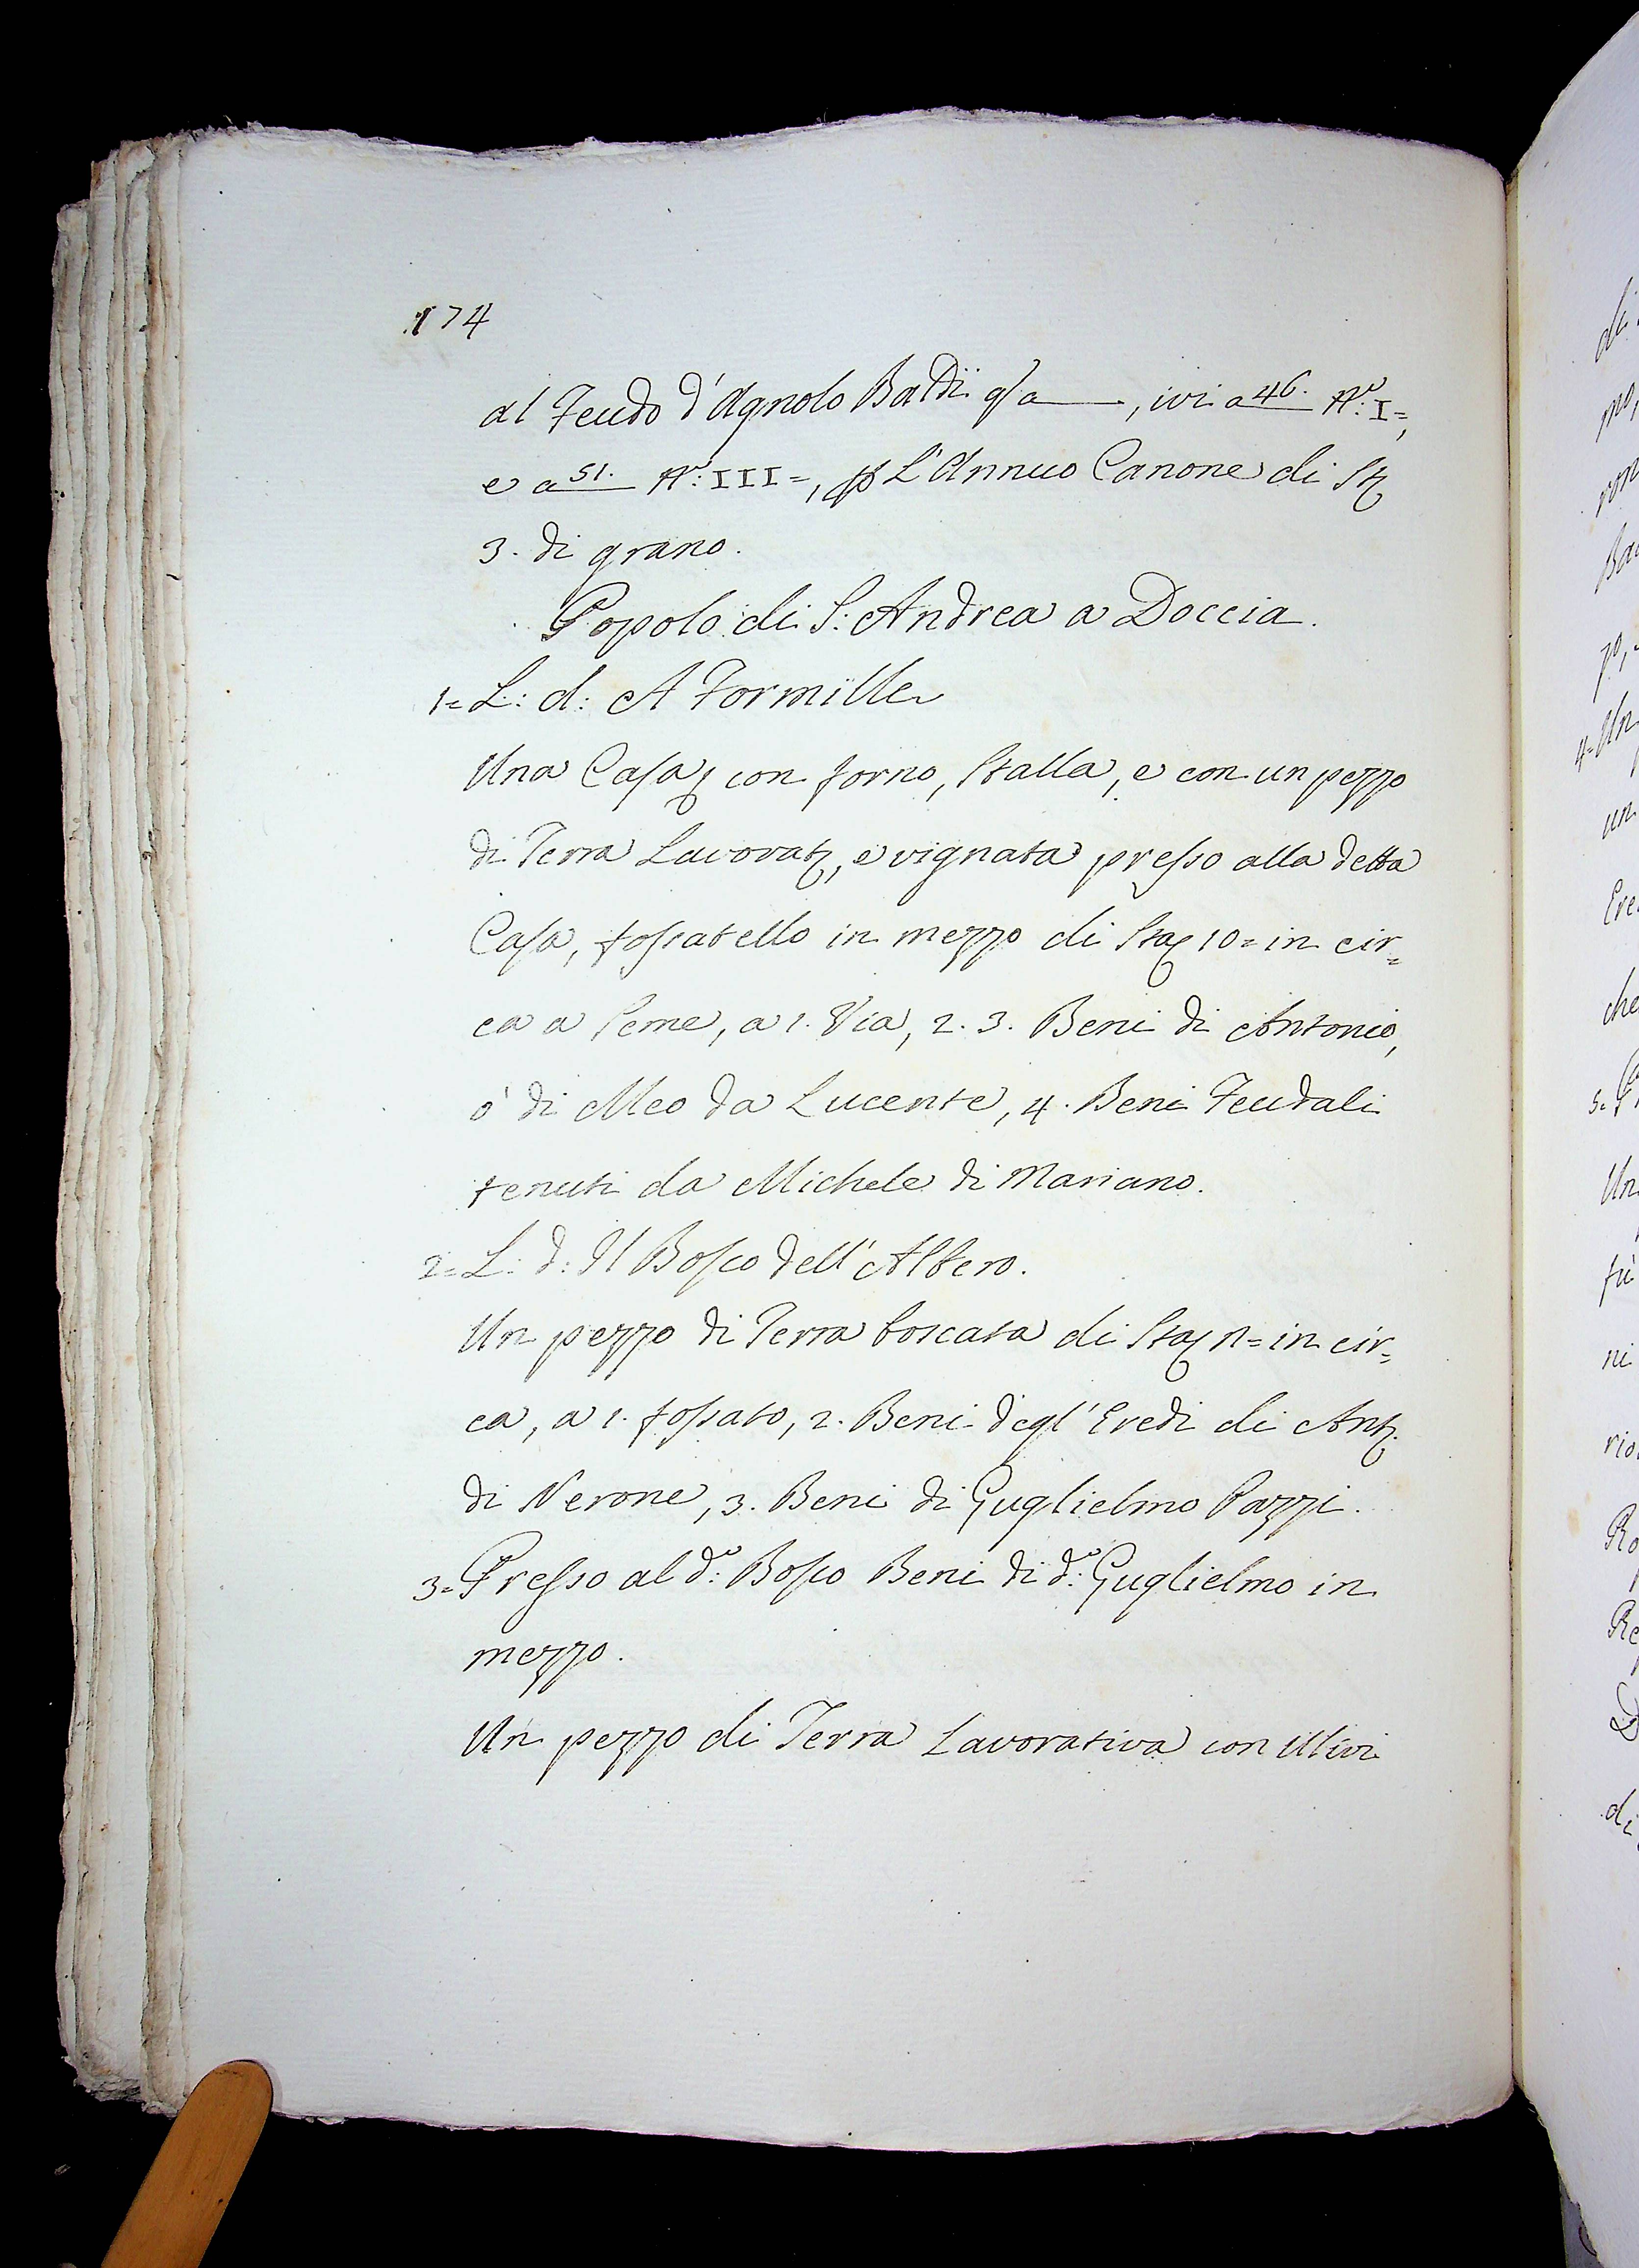 174
al Feudo d'Agnolo Baldi q/a ——, ivi a 46. N.º I=,
e a 51. N.º: III=, p L'Annuo Canone di St
3. di grano.
Popolo di S: Andrea a Doccia.
1= L: d: A Formille
Una Casa, con forno, Stalla, e con un pezzo
di Terra Lavorat, e vignata presso alla detta
Casa, fossatello in mezzo di Sta 10= in cir=
ca a Seme, a 1. Via, 2. 3. Beni di Antonio,
ò di Meo da Lucente, 4. Beni Feudali
tenuti da Michele di Mariano.
2= L: d: Il Bosco dell'Albero.
Un pezzo di Terra boscata di Sta n= in cir=
ca, a 1. fossato, 2. Beni degl'Eredi di Ant.
di Nerone, 3. Beni di Guglielmo Pazzi.
3= Presso al d.º: Bosco Beni di d.º: Guglielmo in
mezzo.
Un pezzo di Terra Lavorativa con Ulivi